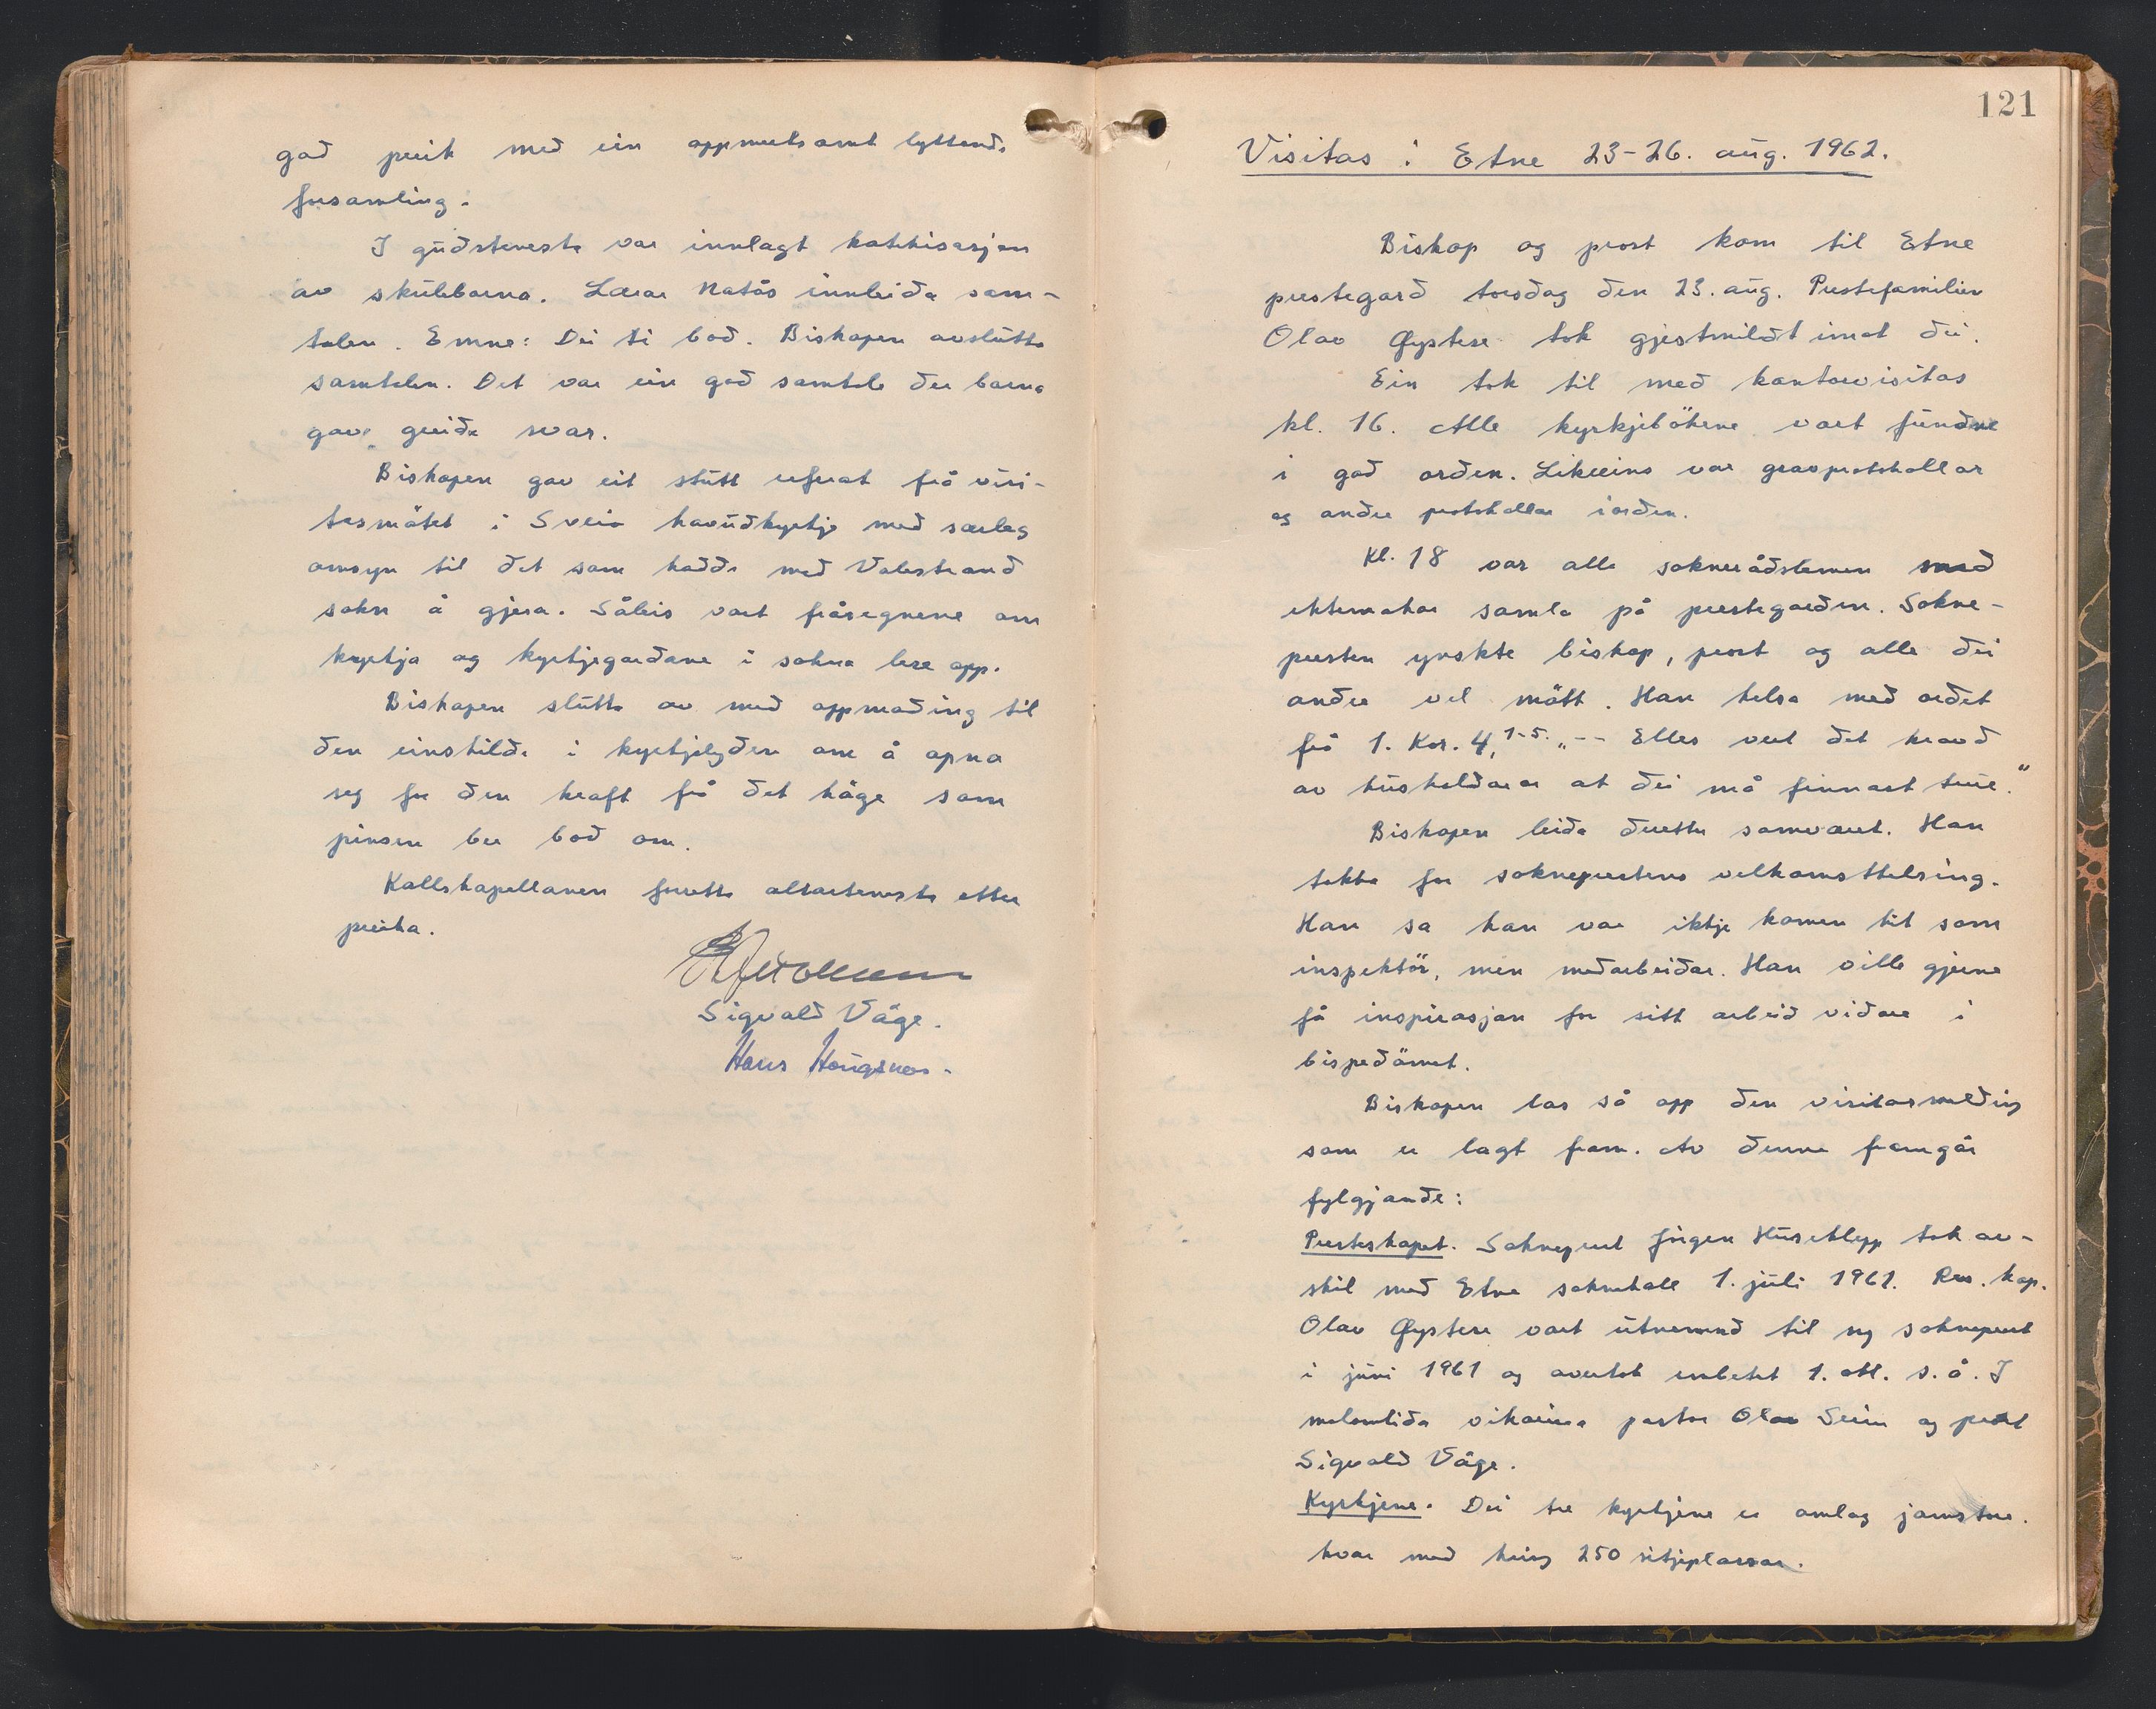 god preik med ein oppmerksamt lyttende
forsamling.
I gudstenesta var innlagt katekisasjon
av skuleborna. Lærar Natås innleida sam-
talen. Emne: Dei ti bod. Biskopen avslutta
samtalen. Det var ein god samtale der borna
gav greide svar.
Biskopen gav eit stutt referat frå visi-
tasmötet i Sveio hovudkyrkje med særleg
omsyn til det som hadde med Valestrand
sokn å gjera. Såleis vart fråsegnene om
kyrkja og kyrkjegardane i sokna lese opp.
Biskopen slutta av med oppmoding til
den einskilde i kyrkjelyden om å opna
seg for den kraft frå det höge som
pinsen ber bod om.
Kallskapellanen forretta altartenesta etter
preika.
Sigvald Våge.
Hans Hougsnes.
121
Visitas i Etne 23-26. aug. 1962.
Biskop og prost kom til Etne
prestegard torsdag den 23. aug. Prestefamilien
Olav Øystese tok gjestmildt imot dei.
Ein tok til med kontorvisitas
kl. 16. Alle kyrkjebökene vart fundne
i god orden. Likeeins var gravprotokollar
og andre protokollar i orden.
Kl. 18 var alle sokneråðslemer med
ektemakar samla på prestegarden. Sokne-
presten ynskte biskop, prost og alle dei
andre vel mött. Han helsa med ordet
frå 1. Kor. 4, 1-5. „-- Elles vert det kravd
av hushaldarar at dei må finnast true."
Biskopen leida deretter samværet. Han
takka for sokneprestens velkomsthelsing.
Han sa han var ikkje komen hit som
inspektör, men medarbeidar. Han ville gjerne
få inspirasjon for sitt arbeid vidare i
bispedömet.
Biskopen las så opp den visitasmelding
som er lagt fram. Av denne framgår
fylgjande:
Presteskapet. Sokneprest Jörgen Huseklepp tok av-
skil med Etne soknekall 1. juli 1961. Res. kap.
Olav Øystese vart utnemnd til ny sokneprest
i juni 1961 og overtok embetet 1. okt. s. å. I
mellomtida vikarierte pastor Olav Seim og prost
Sigvald Våge.
Kyrkjene. Dei tre kyrkjene er omlag jamstore.
hvar med kring 250 sitjeplassar.